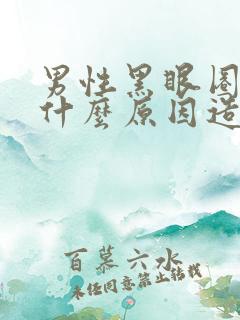 男性黑眼圈
什麼原因造
百慕六水
未经同意禁止转载